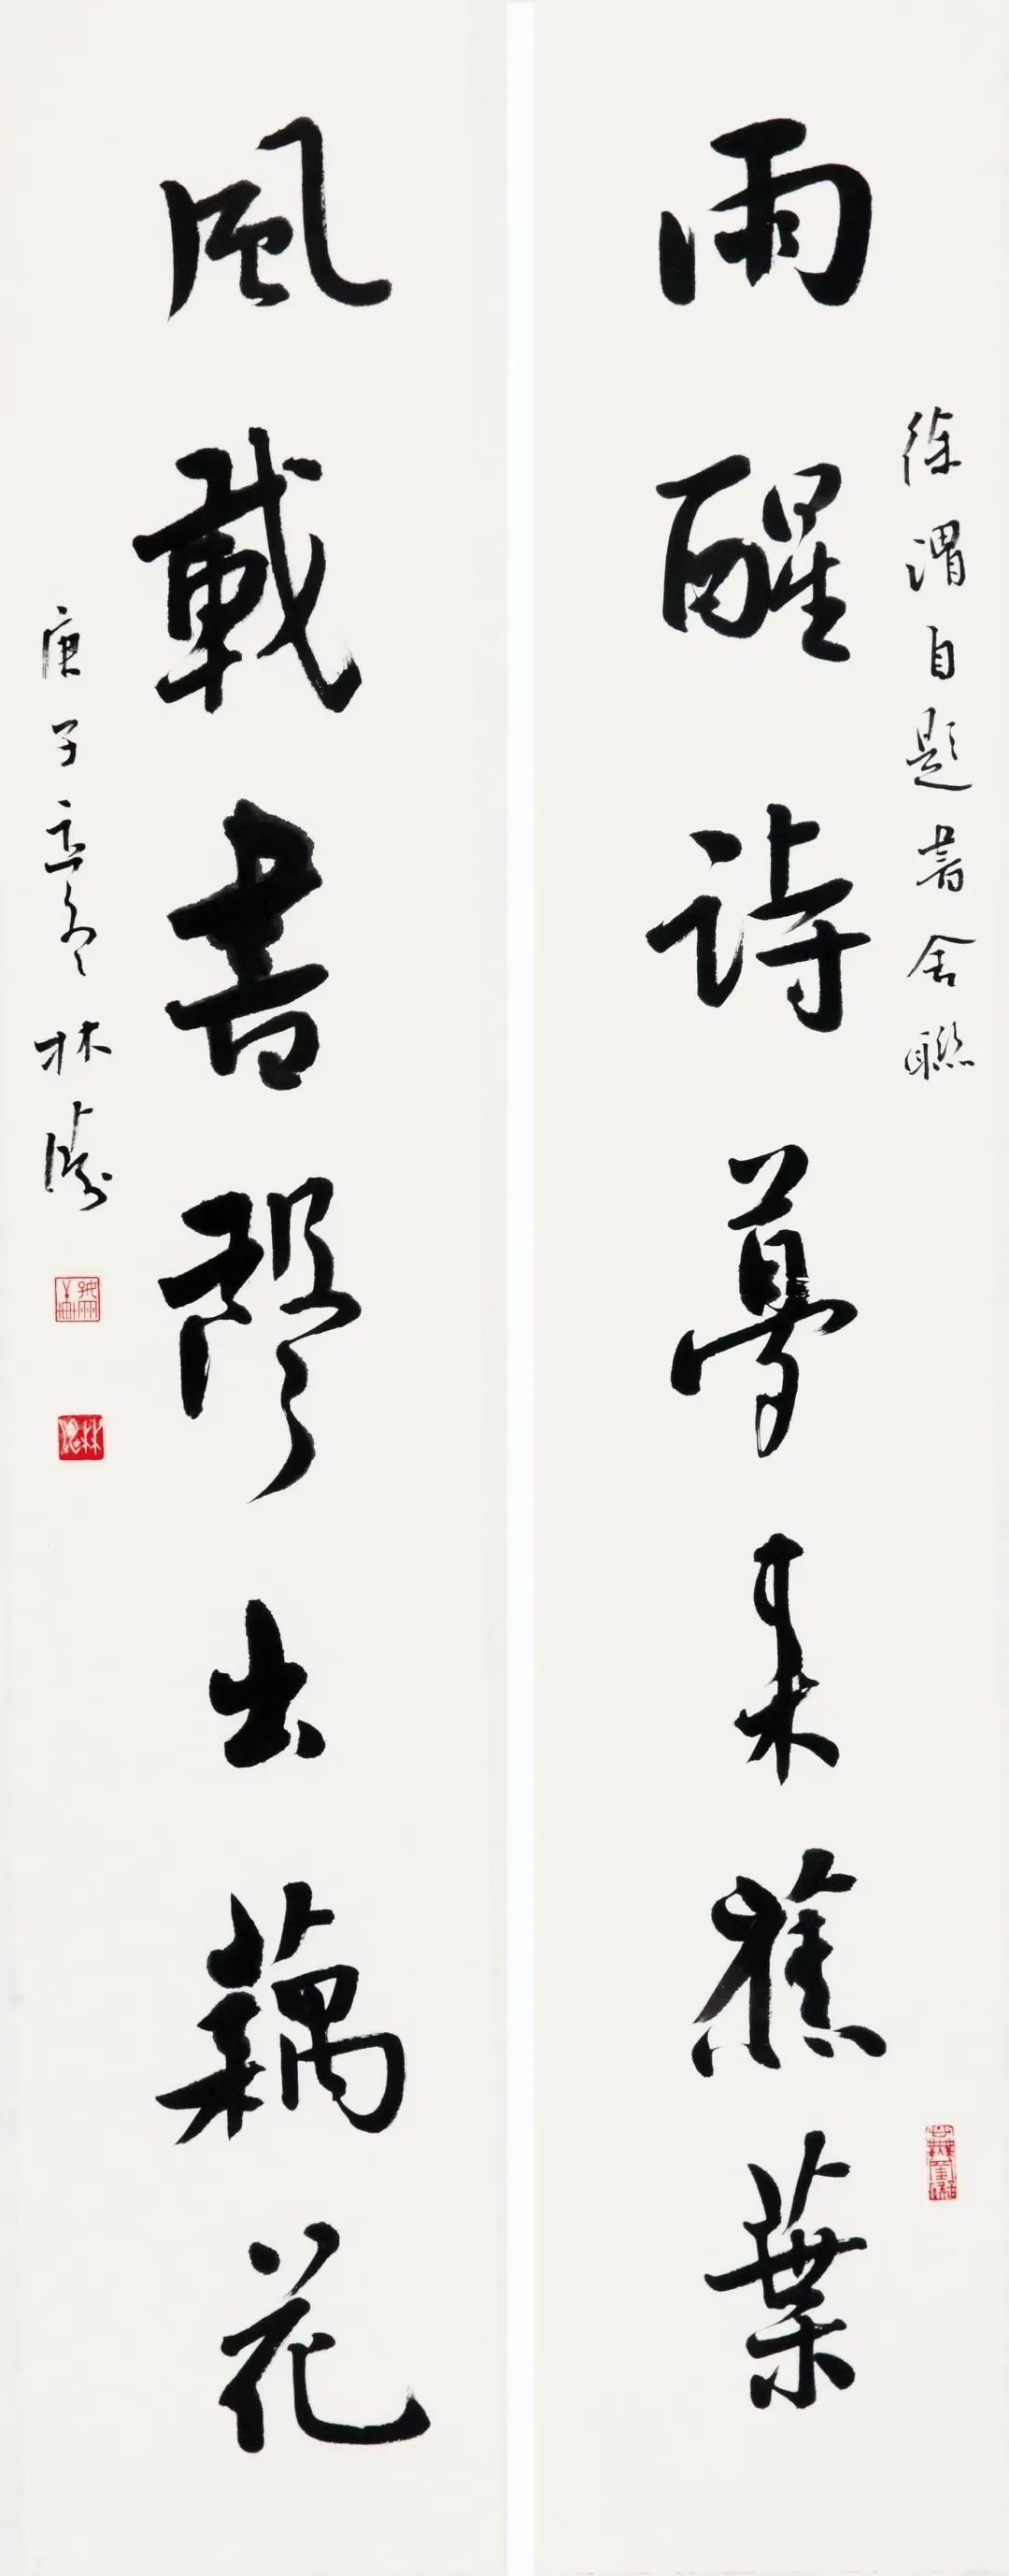 徐渭自題書舍聯
雨醒詩夢來蕉葉
風載書聲出藕花
庚子孟冬 林濤